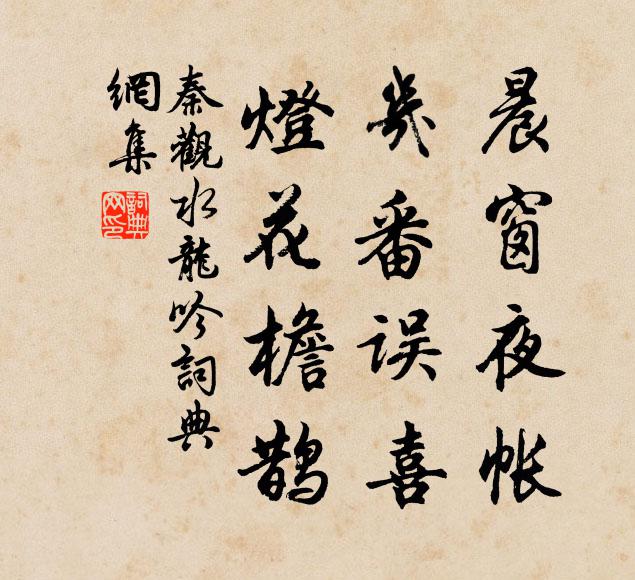 晨窗夜帐
几番误喜
燈花檐鹊
秦觀水龍吟詞典
網集
詞典
网印